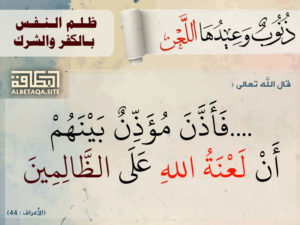 ذُنُوبٌ وَعِيدُهَا اللَّعْن
ظلم النفس
بالكفر والشرك
البطاقة
ALBETAQA.SITE
قال الله تعالى :
....فَأَذَّنَ مُؤَذِّنٌ بَيْنَهُمْ
أَنْ لَعْنَةُ اللهِ عَلَى الظَّالِمِينَ
(الأعراف : 44)